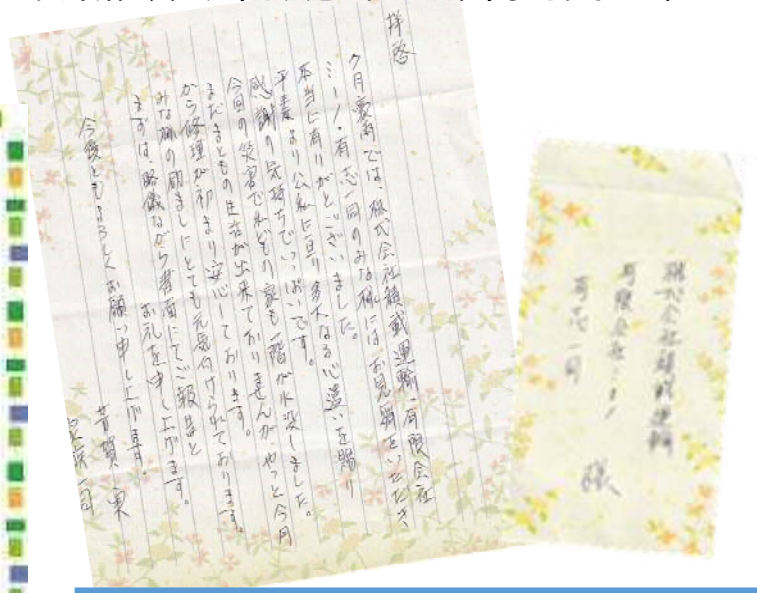 拝啓
7月豪雨では、株式会社積載運輸・有限会社
ミーノ・有志一同のみな様にはお見舞をいただき
本当に有りがとうございました。
平素より公私に亘り多大なる心遣いを賜り
感謝の気持ちでいっぱいです。
今回の災害で私どもの家も一階が水没しました。
まだまともの生活が出来ておりませんが、やっと今月
から修理が初まり安心しております。
みな様の励ましにとても元気付けられております。
まずは、略儀ながら書面にてご報告と
お礼を申し上げます。
今後ともよろしくお願い申し上げます。
実
家族一同
株式会社積載運輸
有限会社ミーノ
有志一同
様